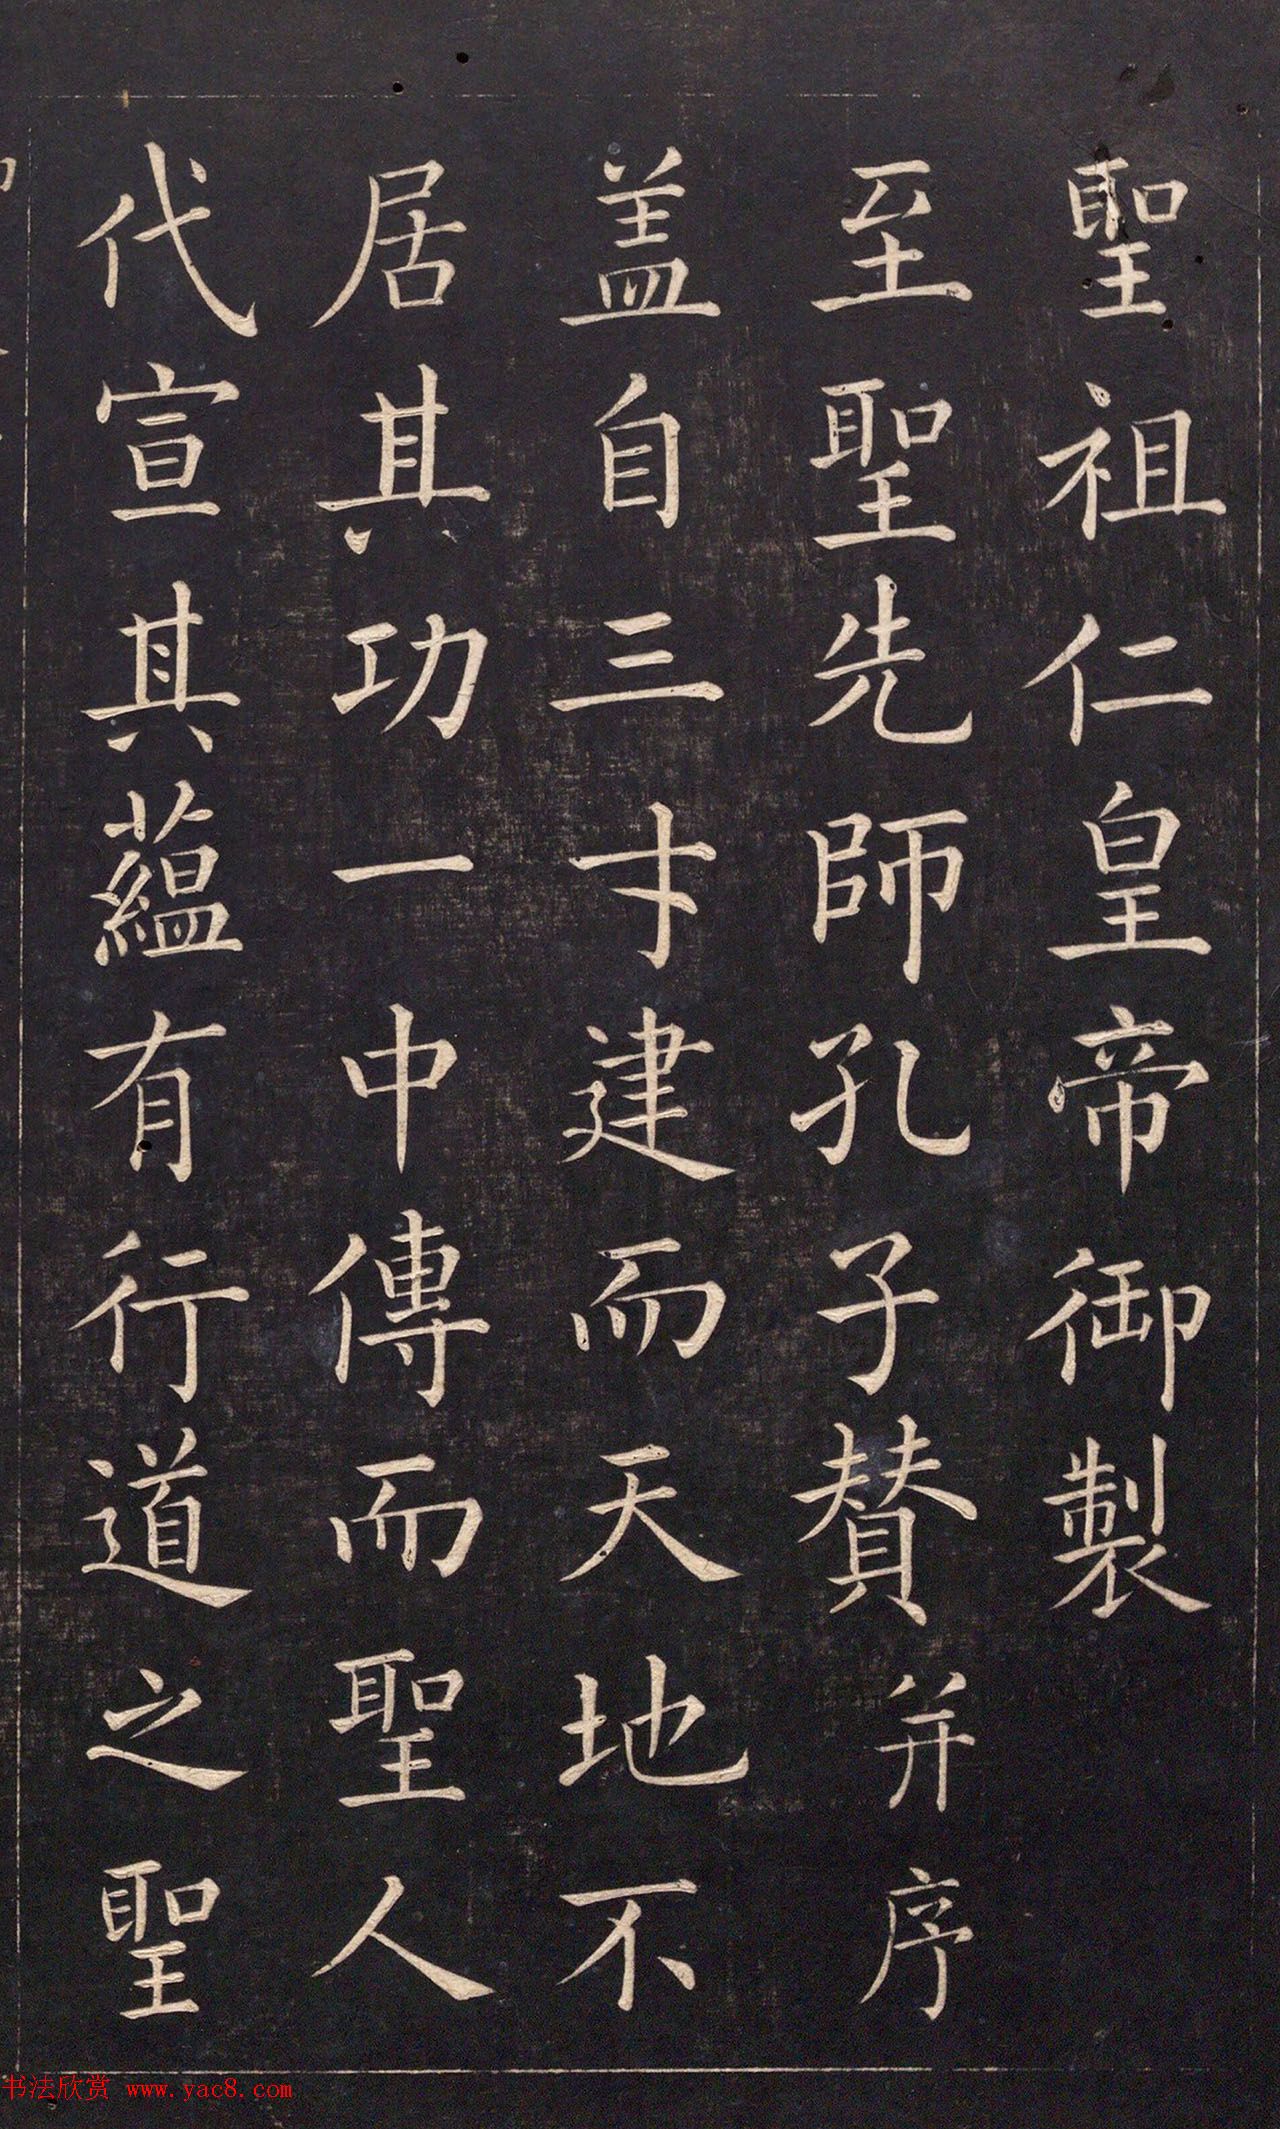 聖祖仁皇帝御製
至聖先師孔子賛并序
盖自三才建而天地不
居其功一中傳而聖人
代宣其蘊有行道之聖
书法欣赏 www.yac8.com